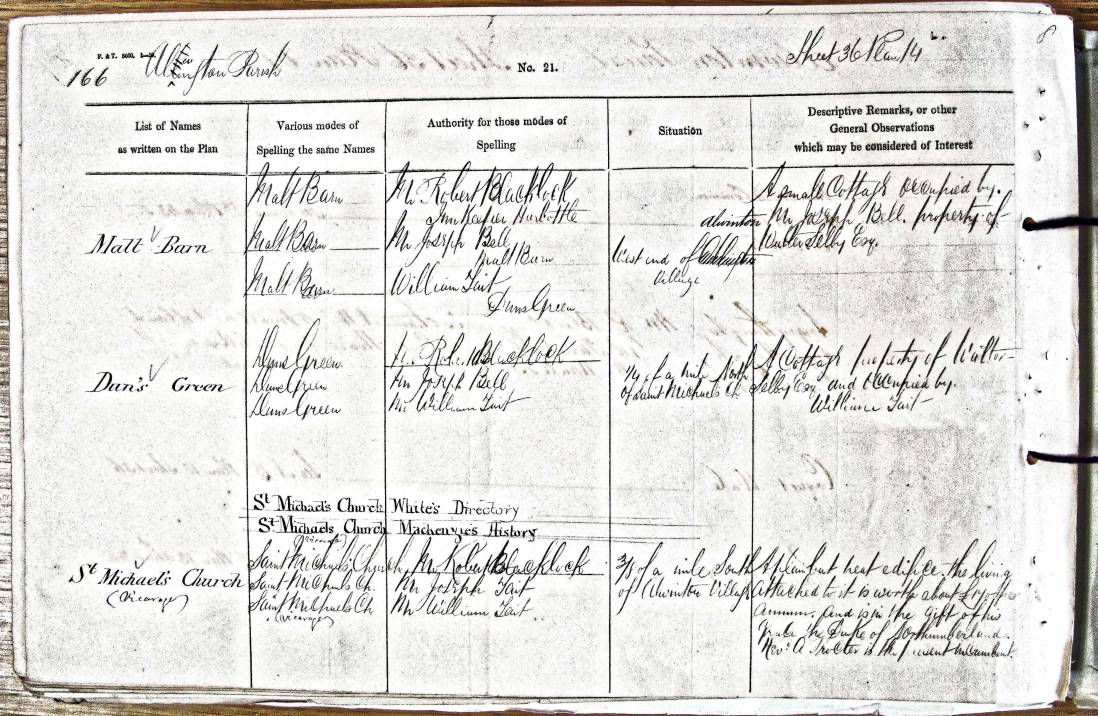 F. & T. 5000.
166
Parish
No. 21.
Sheet 36 Plan 14
8
List of Names
as written on the Plan
Various modes of
Spelling the same Names
Authority for those modes of
Spelling
Situation
Descriptive Remarks, or other
General Observations
which may be considered of Interest
Malt Barn
Malt Barn
Malt Barn
Malt Barn
Mr Robert Blacklock
Mr Joseph Bell
Malt Barn
William Tait
Duns Green
Alwinton
West end of
Village
A small Cottage occupied by.
Mr Joseph Bell. property of
Walter Selby Esq.
Dan's Green
Duns Green
Duns Green
Duns Green
Mr Robert Blacklock
Mr Joseph Bell
Mr William Tait
1/4 of a mile North
of Saint Michaels Ch
A Cottage property of Walter
Selby Esq and occupied by.
William Tait
St Michael's Church
(Vicarage)
St Michael's Church
St Michaels Church
(Vicarage)
Saint Michaels Church
Saint Michaels Ch.
Saint Michaels Ch
(Vicarage)
White's Directory
Mackenzie's History
Mr Robert Blacklock
Mr Joseph Tait
Mr William Tait
3/8 of a mile South
of Alwinton Village
A plain but neat edifice. the living
Attached to it is worth about
annum. and is in the gift of his
Grace the Duke of Northumberland.
Revd A Procter is the present incumbent.